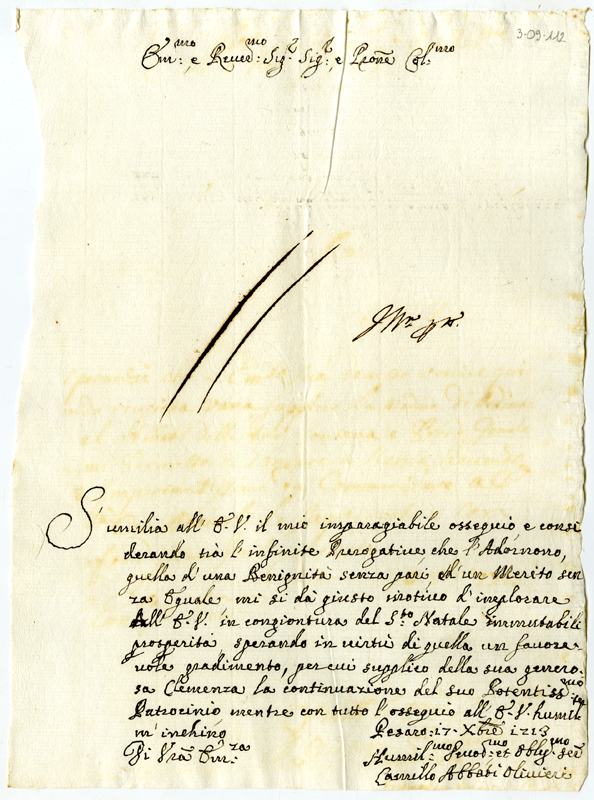 3-09-112
Em:mo e Reuer:mo Sig:r Sig:r e Prone Col:mo
S'umilia all' E.V. il mio imparagiabile ossequio e consi
derando trà l'infinite Prerogatiue che l'Adornono,
quella d'una Benignità senza pari ed'un Merito sen
za Eguale mi si dà giusto motiuo d'implorare
All' E.V. in congiontura del S.to Natale immutabili
prosperità, sperando in uirtù di quella un fauore
uole gradimento, per cui supplico della sua genero
sa Clemenza la continuazione del suo Potentiss:mo
Patrocinio mentre con tutto l'ossequio all' E.V. humilm:te
m'inchino
Pesaro: 17. Xbre 1713
Di Vra Em:za
Humil:mo Deuot:mo et Oblig:mo Ser
Camillo Abbati Oliuieri